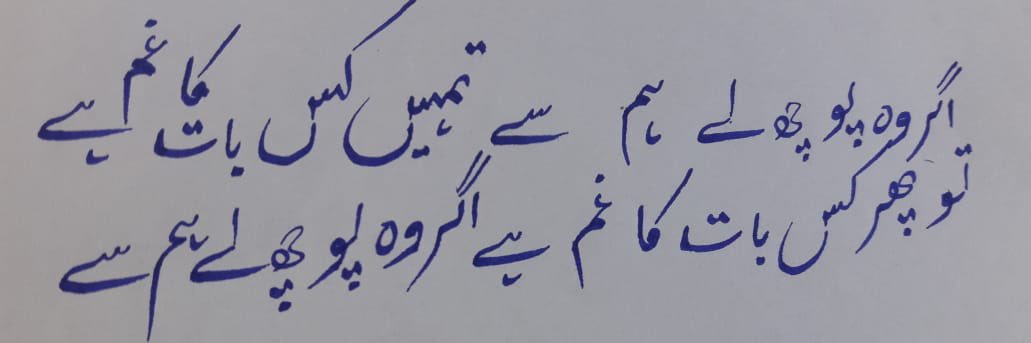 اگر وہ پوچھ لے ہم سے تمہیں کس بات کا غم ہے
تو پھر کس بات کا غم ہے اگر وہ پوچھ لے ہم سے